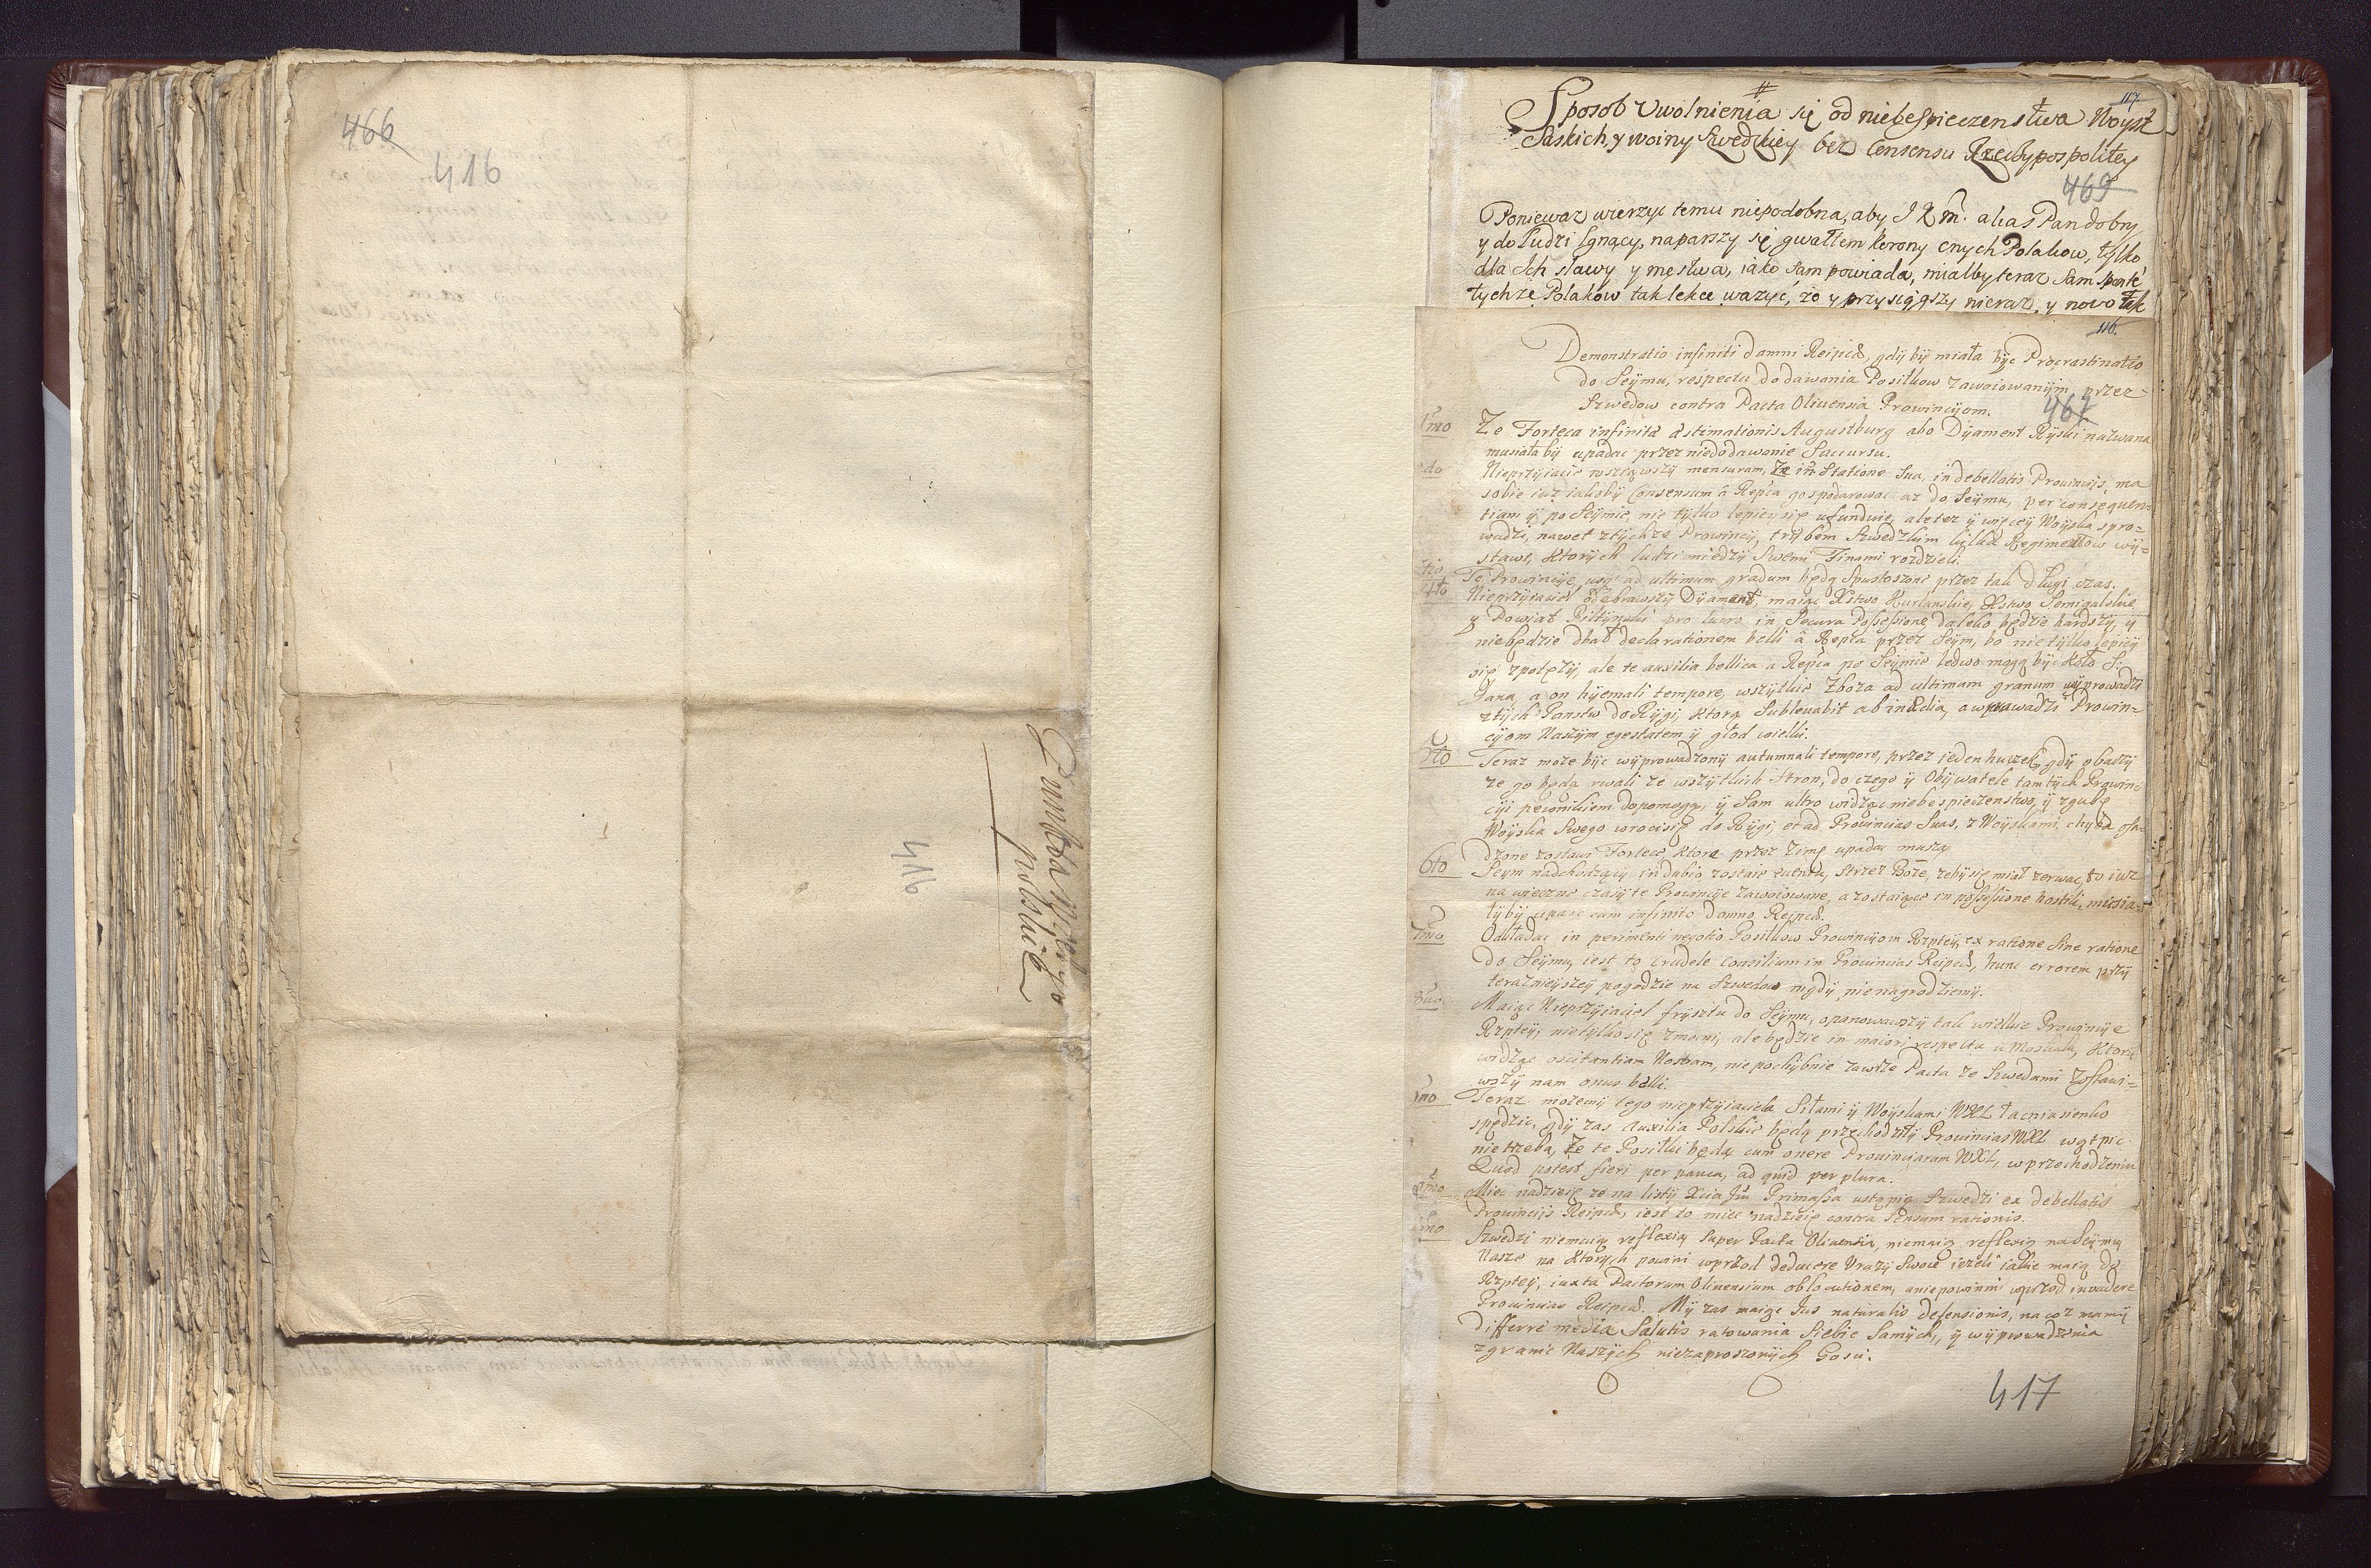 466
416
Punkta Woien[...]
polskie
416
117.
Sposob Uwolnienia się od niebespieczenstwa Woysk
Saskich, y woiny Szwedzkiey bez Consensu Rzeczypospolitey
469
Poniewaz wierzyc temu niepodobna, aby J K M. alias Pan dobry
y do ludzi lgnący, naparszy się gwałtem korony cnych Polakow, tylko
dla Ich sławy y męstwa, iako sam powiada, miałby teraz sam sponte
tychże Polakow tak lekce wazyć, że y przysiągszy nieraz, y novo
116.
Demonstratio infiniti damni Reipcæ, gdÿ bÿ miała bÿc Procrastinatio
do Seÿmu, respectu dodawania Posiłkow zawoiowanÿm przez
Szwedow contra Pacta Oliuensia Prowincÿom.
467
1mo Ze Forteca infinitæ æstimationis Augustburg abo Dÿament Rÿski nazwana
musiała bÿ upadac przez niedodawanie Succursu.
do Nieprzÿiaciel wziąwszÿ mensuram, Ze in Statione Sua, in debellatis Prowincijs, ma
sobie iuz iakobÿ Consensum â Repca gospodarowac az do Seÿmu, per consequen=
tiam ÿ po Seÿmie, nie tÿlko lepieÿ się ufunduie, ale tez ÿ więceÿ Woÿska spro=
wadzi, nawet z tÿchze Prowincÿi, trÿbem Szwedzkim kilka Regimentow wÿ=
stawi, ktorÿch ludzi miedzÿ Swemi Finami rozdzieli.
tio Te Prowincÿe, usq ad ultimum gradum będą Spustoszone przez tak długi czas.
4to Nieprzÿiaciel odebrawszÿ Dÿament, maiąc Xstwo Kurlanskie, Xstwo Semigalskie
y Powiat Piltÿnski pro lucro in Secura Possessione, daleko będzie hardszÿ, ÿ
niebędzie dbał declarationem belli â Repca przez Seÿm, bo nie tÿlko lepieÿ
się zpotężÿ, ale te auxilia bellica a Repca po Seÿmie ledwo mogą bÿc koło S.
Jana, a on hÿemali tempore, wszÿtkie zboza ad ultimum granum wÿprowadzi
z tÿch Panstw do Rÿgi, ktorą Subleuabit ab inedia, a wprawadzi Prowin=
cÿom Naszÿm egestatem ÿ głod wielki.
5to Teraz moze bÿc wÿprowadzonÿ autumnali tempore, przez ieden huczek, gdÿ obaczÿ
ze go będą rwali ze wszÿtkich Stron, do czego ÿ Obÿwatele tamtÿch Prowin=
cÿi pewnikiem dopomogą, ÿ Sam ultro widząc niebespieczenstwo, ÿ zgubę
Woÿska Swego wroci się do Rÿgi, et ad Prouincias Suas, z Woÿskami, chÿba osa=
dzone zostawi Fortece, ktore przez Zimę upadac muszą.
6to Seÿm nadchodzącÿ in dubio zostaie euentu, Strzez Boże, zebÿ się miał zerwac, to iuz
na wieczne czasÿ te Prowincÿe zawoiowane, a zostaiące in possessione hostili, musia=
łÿ bÿ upasc cum infinito damno Reipcæ.
7mo Odkładac in perimenti negotio Posiłkow Prowincÿom Rzpteÿ, ex ratione sine ratione
do Seÿmu, iest to crudele consilium in Prouincias Reipcæ, hunc errorem przÿ
terazniejszeÿ pogodzie na Szwedow nigdÿ nienagrodziemÿ.
8uo. Maiąc Nieprzÿiaciel frÿsztu do Seÿmu, opanowawszÿ tak wielkie Prowincÿe
Rzpteÿ, nietÿlko się zmocni, ale będzie in maiori respectu u Moskwÿ, ktora
widząc oscitantiam Nostram, niepochÿbnie zawrze Pacta ze Szwedami zostawi=
wszÿ nam onus belli.
no Teraz mozemÿ tego nieprzÿiaciela Siłami ÿ Woÿskami WXL tacniusienko
spędzic, gdÿ zas Auxilia Polskie będą przechodziłÿ Prouincias WXL wątpic
nietrzeba, Ze te Posiłki będą cum onere Prouinciarum WXL, w przechodzeniu
Quod potest fieri per pauca, ad quid per plura.
mo Miec nadzieię ze na listÿ Xcia Jm Primassa ustąpią Szwedzi ex debellatis
Prouincijs Reipcæ, iest to miec nadzieię contra Sensum rationis.
mo Szwedzi niemaią reflexią super Pacta Oliuensia, niemaią reflexią na Seÿmy
Nasze na ktorÿch powini wprzod deducere Urazÿ Swoie iezeli iakie maią do
Rzpteÿ, iuxta Pactorum Oliuensium oblocutionem, a niepowinni wprzod inuadere
Prouincias Reipcæ. Mÿ zas maiąc Jus naturalis defensionis, na coz mamÿ
differre media Salutis ratowania Siebie Samÿch, ÿ wÿprowadzenia
z granic Naszÿch niezaproszonÿch Gosci.
417